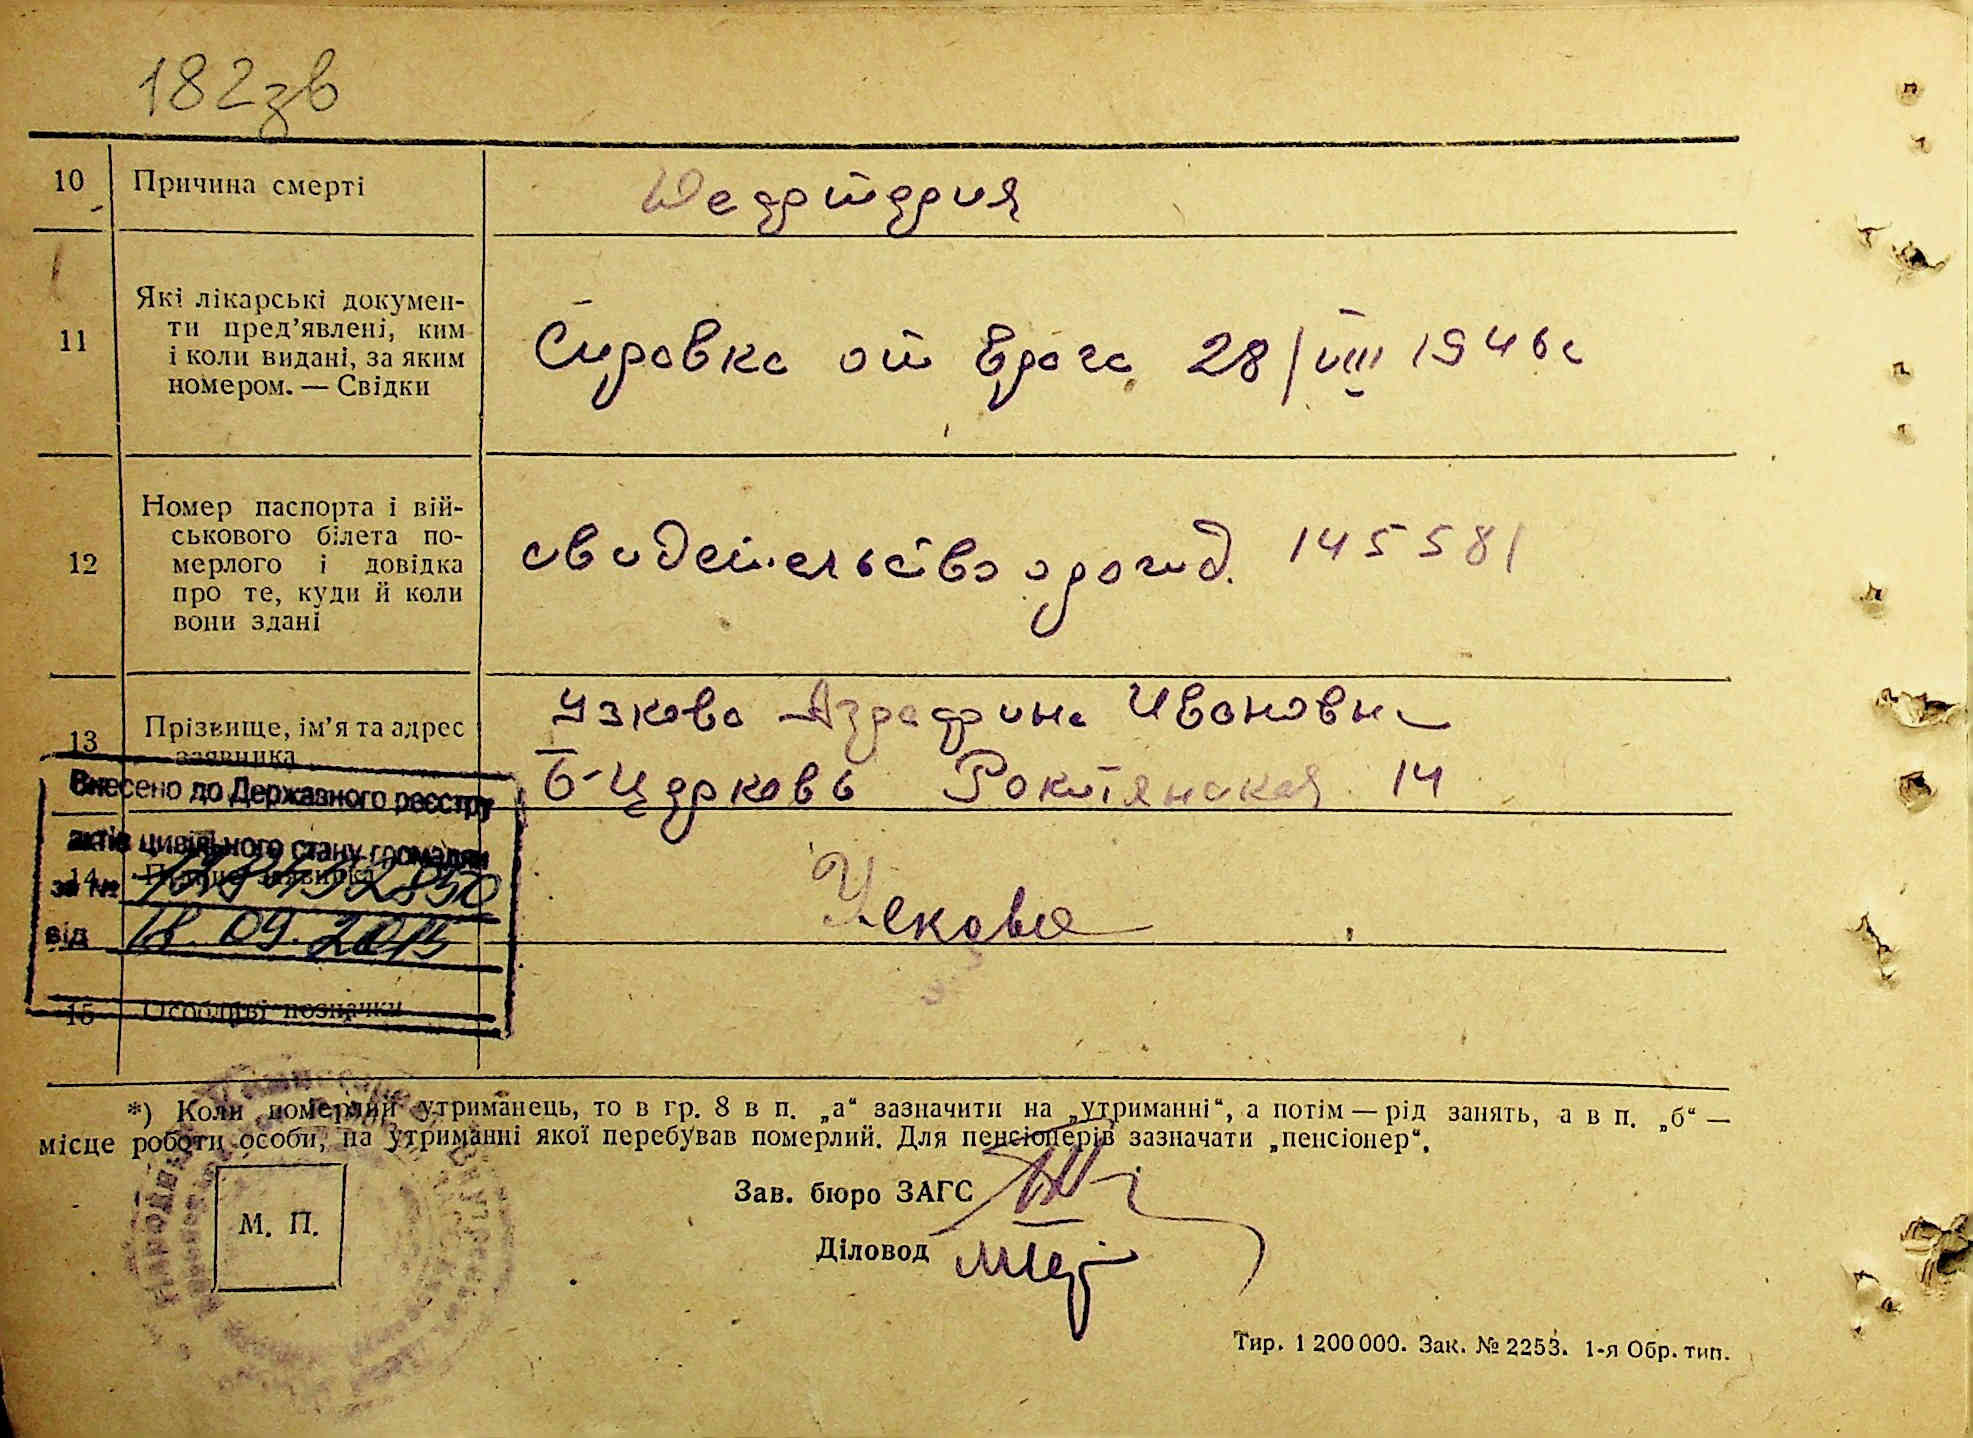 182зв
10 Причина смерті
11 Які лікарські докумен-
ти пред’явлені, ким
і коли видані, за яким
номером. — Свідки
Справка от врача 28/VIII 1946г
12 Номер паспорта і вій-
ськового білета по-
мерлого і довідка
про те, куди й коли
вони здані
свидетельство о рожд. 145581
Ивановна
13 Прізвище, ім’я та адрес
заявника
Б-Церковь Рокитянская 14
Внесено до Державного реєстру
актів цивільного стану громадян
14
за №
Ускова
від 18.09.2015
15 Особливі позначки
*) Коли померлий утриманець, то в гр. 8 в п. „а“ зазначити на „утриманні“, а потім — рід занять, а в п. „б“ —
місце роботи особи, на утриманні якої перебував померлий. Для пенсіонерів зазначати „пенсіонер“.
Зав. бюро ЗАГС
М. П.
Діловод
Тир. 1 200 000. Зак. № 2253. 1-я Обр. тип.